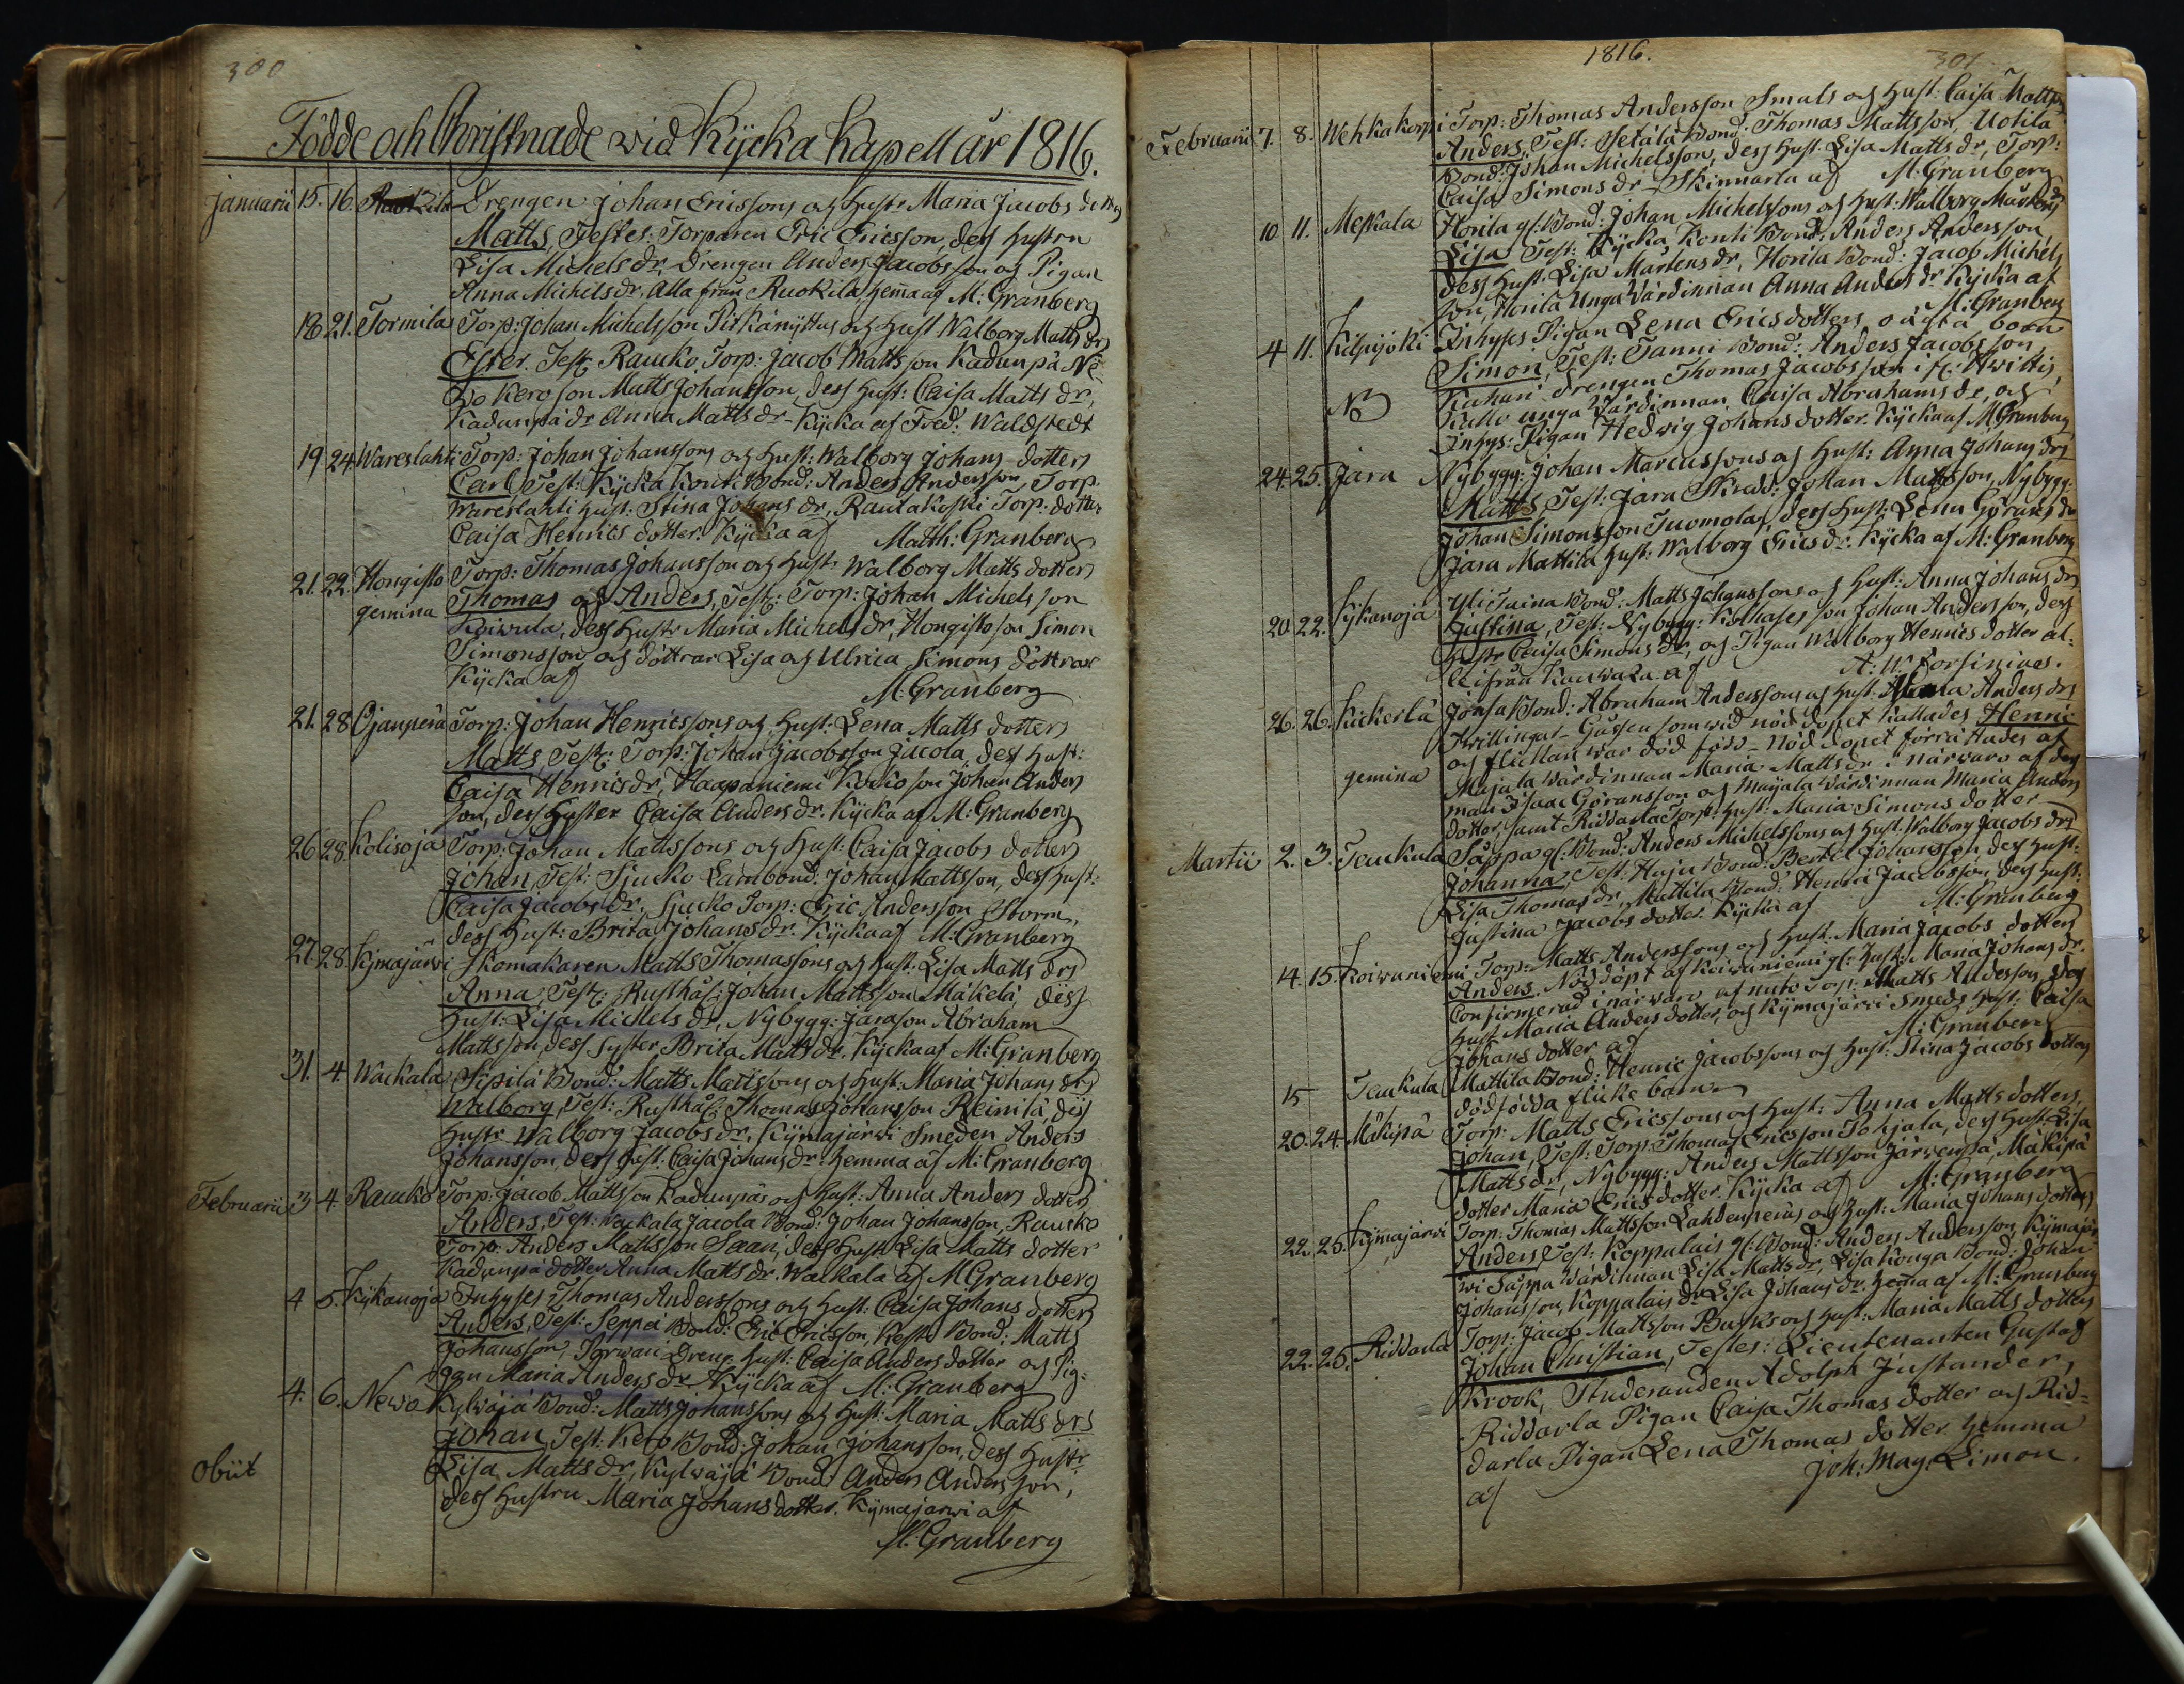 300
Födde och Christnade wid Kycka Kapell år 1816.
Januarii 15. 16. Ruokila Drengen Johan Ericssons och Hustr Maria Jacobs dotters
Matts, Testes: Torparen Eric Ericsson, dess hustru
Lisa Michels dr, Drengen Anders Jacobsson och Pigan
Anna Michels dr. Alla från Ruokila, hemma af M: Granberg
18 21. Tormila Torp: Johan Michelsson Pirkänyttus och Hust Walborg Matts drs
Ester. Test: Raucko Torp: Jacob Mattsson Kadunpä Ne-
wo Kero son Matts Johansson, dess hust: Caisa Matts dr,
Kadunpä dr Anna Matts dr - Kycka af Fred: Waldstedt
19 24 Wareslahti Torp: Johan Johanssons och Hust: Walborg Johans dotters
Carl, Test: Kycka Kouti Bond: Anders Andersson, Torp.
Wareslahti hust. Stina Johans dr, Rautakoski Torp. dotter
Caisa Henrics dotter. Kycka af Matth: Granberg
21. 22. Hongisto Torp: Thomas Johansson och Hustr Walborg Matts dotters
gemina Thomas och Anders, Test: Torp: Johan Michelsson
Koiwula, dess Hustr Maria Michels dr, Hongisto son Simon
Simonsson och döttrar Lisa och Ulrica Simons döttrar
Kycka af
M: Granberg
21. 28 Ojanperä Torp: Johan Henricssons och Hust: Lena Matts dotters
Matts, Test: Torp: Johan Jacobsson Jacola, dess hust:
Caisa Henrics dr, Haapaniemi Kocko son Johan Anders
son, dess Syster Caisa Anders dr. Kycka af M: Granberg
26 28. Kolisoja Torp: Johan Mattssons och Hust: Caisa Jacobs dotters
Johan, Test: Sjucko Lambond: Johan Mattsson, dess hust:
Caisa Jacobs dr, Sjucko Torp: Eric Andersson Storm,
dess Hust: Brita Johans dr. Kycka af M: Granberg
27. 28. Kymajärwi Skomakaren Matts Thomassons och Hust: Lisa Matts drs
Anna, Test: Rusthål: Johan Mattsson Mäkelä, dess
Hust: Lisa Michels dr, Nybygg: Jara son Abraham
Mattsson, dess Syster Brita Matts dr. Kycka af M: Granberg
31. 4. Wackala Sipilä Bond: Matts Mattssons och Hust: Maria Johans drs
Walborg, Test: Rusthål: Thomas Johansson Reinilä, dess
hustr Walborg Jacobs dr, Kymajärwi Smeden Anders
Johansson, dess hust: Caisa Johans dr. hemma af M: Granberg
Februarii 3 4 Raucko Torp: Jacob Mattsson Kadunpäs och Hust: Anna Anders dotters
Anders, Test: Wackala Jacola Bond: Johan Johansson, Raucko
Torp: Anders Mattsson Saari, dess Hust: Lisa Matts dotter
Kadunpä dotter Anna Matts dr. Wackala af M Granberg
4 5. Kykanoja Inhyses Thomas Anderssons och Hust: Caisa Johans dotters
Anders, Test: Seppä Bond: Eric Ericsson, Kesti Bond: Matts
Johansson, Torwan Dreng: hust: Caisa Anders dotter och Pig-
gan Maria Anders dr. Kycka af M: Granberg
4. 6. Newo Kylwäjä Bond: Matts Johanssons och Hust: Maria Matts drs
Johan, Test: Kero Bond: Johan Johansson, dess Hustr
Obiit Lisa Matts dr, Kylwäjä Bond: Anders Andersson,
dess hustru Maria Johans dotter. Kymajärwi af
M: Granberg
1816. 301
Februarii 7. 8. Wehkakorpi Torp: Thomas Andersson Smals och Hust: Caisa Matts
Anders, Test: Jetälä Bond: Thomas Mattsson, Uotila
Bond: Johan Michelsson, dess Hust: Lisa Matts dr, Torp:
Caisa Simons dr Skinnarla af M: Granberg
10 11. Meskala Horila gl: Bond: Johan Michelssons och Hust: Walborg Mårtens
Lisa Test: Kycka Konti Bond: Anders Andersson,
dess Hust. Lisa Mårtens dr, Horila Bond: Jacob Michels
son, Horila Unga Wärdinnan Anna Anders dr Kycka af
M: Granberg
4 11. Kilpijoki Inhyses Pigan Lena Ericsdotters oägta barn
Simon, Test: Tanni Bond: Anders Jacobsson
NB Kahari drengen Thomas Jacobsson i st: Hwittis,
Kallo unga Wärdinnan Caisa Abrahams dr, och
Inhys: Pigan Hedwig Johans dotter. Kycka af M Granberg
24. 25. Jara Nybygg: Johan Marcussons och Hust: Anna Johans drs
Matts, Test: Jara Skredd: Johan Mattsson, Nybygg:
Johan Simonsson Tuomola, dess Hust: Lena Görans dr
Jara Mattila Hust: Walborg Erics dr. Kycka af M: Granberg
20 22. Kykanoja Yli Taina Bond: Matts Johanssons och Hust: Anna Johans drs
Justina, Test: Nybygg: son Johan Andersson, dess
hustr Caisa Simons dr, och Pigan Walborg Henrics dotter al-
la ifrån af A: W: Forsinius.
26. 26. Kickerlä Jonsa Bond: Abraham Anderssons och Hust: Anders drs
Twillingar - Gossen som wid nöddopet kallades Henric
och flickan war död född - Nöddopet förrättades af
gemina Majala Wärdinnan Maria Matts dr i närwaro af dess
man Isaac Göransson och Maijala Wärdinnan Maria Anders
dotter, samt Riddarla Torp: Hust: Maria Simons dotter
Martii 2. 3. Teuckula Säppä gl: Bond: Anders Michelssons och Hust: Walborg Jacobs drs
Johanna, Test: Haju Bond: Bertil Johansson, dess Hust:
Lisa Thomas dr, Mattila Bond: Henric Jacobsson, dess Hust:
Justina Jacobs dotter. Kycka af M: Granberg
14. 15. Koiwuniemi Torp: Matts Anderssons och Hust: Maria Jacobs dotters
Anders. Nöddöpt af Koiwuniemi gl: Hust: Maria Johans dr.
Confirmerad i närwaro af Torp: Matts Andersson, dess
Hust: Maria Anders dotter, och Kymajärwi Smeds Hust: Caisa
Johans dotter af M: Granberg
15 Teuckula Mattila Bond: Henric Jacobssons och Hust: Stina Jacobs dotters
dödfödda flicke barn.
20. 24. Mäkipä Torp: Matts Ericssons och Hust: Anna Matts dotters,
Johan, Test: Torp: Thomas Ericsson Pohjala, dess Hust: Lisa
Matts dr, Nybygg: Anders Mattsson Järwenpä, Mäkipä
dotter Maria Erics dotter. Kycka af M: Granberg
22. 25. Kymajärwi Torp: Thomas Mattsson Lahdenperäs och Hust: Maria Johans dotters
Anders, Test: Koppalais gl: Bond: Anders Andersson, Kymajär-
wi Säppä Wärdinnan Lisa Matts dr, Lisa Kouga Bond: Johan
Johansson, Koppalais dr Lisa Johans dr. hemma af M: Granberg
22. 25. Riddarla Torp: Jacob Mattsson Busks och Hust: Maria Matts dotters
Johan Christian, Testes: Lieutenanten Gustaf
Krook, Studeranden Adolph Justander,
Riddarla Pigan Caisa Thomas dotter och Rid-
darla Pigan Lena Thomas dotter. hemma
af Joh: Mag: Limon.